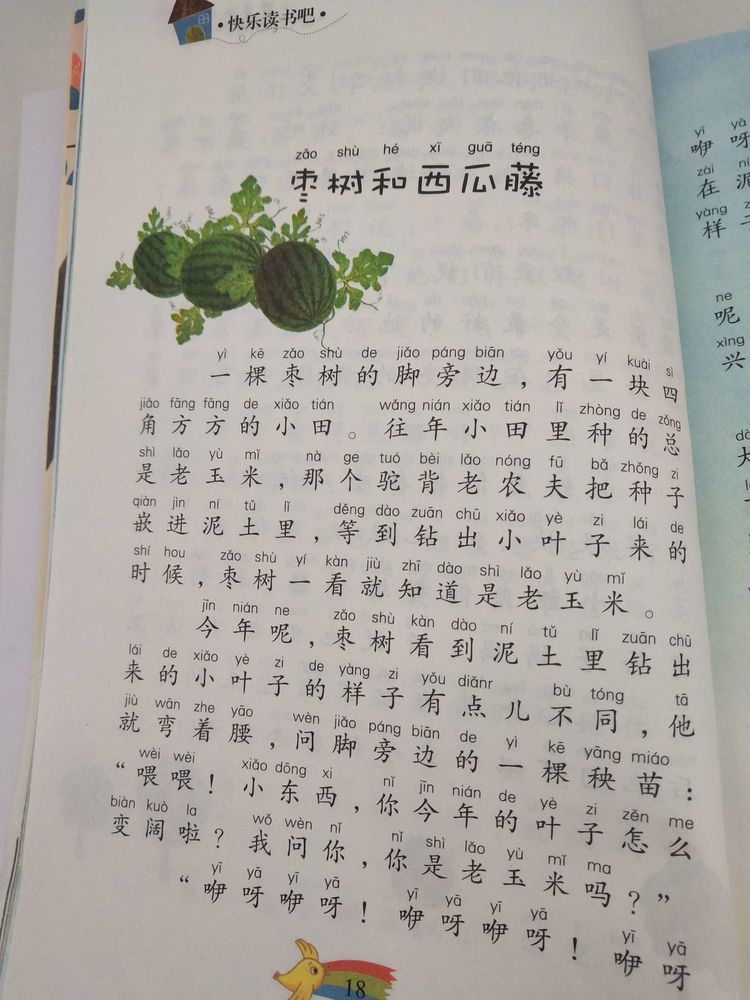 ·快乐读书吧·
zǎo shù hé xī guā téng
枣树和西瓜藤
yì kē zǎo shù de jiǎo páng biān yǒu yí kuài sì
一棵枣树的脚旁边，有一块四
jiǎo fāng fāng de xiǎo tián wǎng nián xiǎo tián lǐ zhòng de zǒng
角方方的小田。往年小田里种的总
shì lǎo yù mǐ nà ge tuó bèi lǎo nóng fū bǎ zhǒng zi
是老玉米，那个驼背老农夫把种子
qiàn jìn ní tǔ lǐ děng dào zuān chū xiǎo yè zi lái de
嵌进泥土里，等到钻出小叶子来的
shí hou zǎo shù yí kàn jiù zhī dào shì lǎo yù mǐ
时候，枣树一看就知道是老玉米。
jīn nián ne zǎo shù kàn dào ní tǔ lǐ zuān chū
今年呢，枣树看到泥土里钻出
lái de xiǎo yè zi de yàng zi yǒu diǎnr bù tóng tā
来的小叶子的样子有点儿不同，他
jiù wān zhe yāo wèn jiǎo páng biān de yì kē yāng miáo
就弯着腰，问脚旁边的一棵秧苗：
wèi wèi xiǎo dōng xi nǐ jīn nián de yè zi zěn me
“喂喂！小东西，你今年的叶子怎么
biàn kuò la wǒ wèn nǐ nǐ shì lǎo yù mǐ ma
变阔啦？我问你，你是老玉米吗？”
yī yā yī yā yī yā yī yā yī yā
“咿呀咿呀！咿呀咿呀！咿呀
18
yī yā
咿呀
zài ní
在泥
yàng
样
ne
呢
xìng
兴